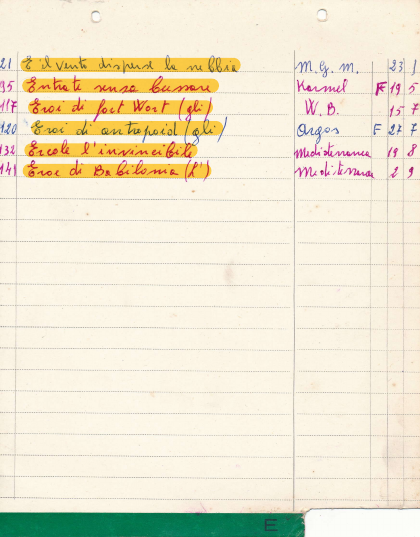 21 E il vento disperse la nebbia M.G.M. 23 1
95 Entrate senza bussare Karmel F 19 5
117 Eroi di fort Wort (gli) W.B. 15 7
120 Eroi di antrapoid (gli) Argos F 27 7
132 Ercole l'invincibile Mediterranea 19 8
141 Eroe di Babilonia (L') Mediterranea 2 9
E